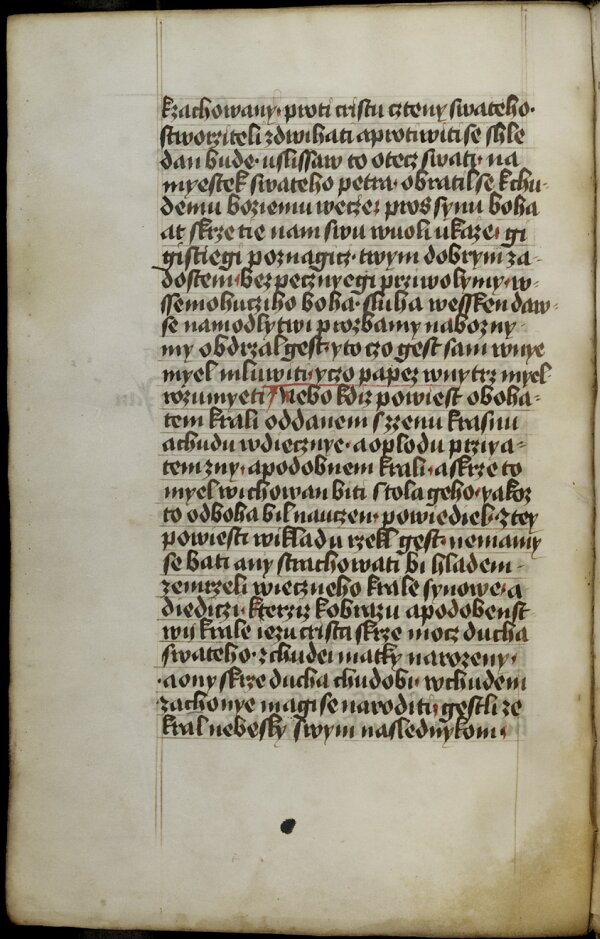 kzachowany· proti cristu czteny swateho·
stworziteli zdwihati aprotiwiti se shle
dan bude· uslissaw to otecz swati· na
myestek swateho petra· obratil se kchu-
demu boziemu weczez pros synu boha
at skrze tie nam swu wuoli ukaze· gi
gistiegi poznagicz· twym dobrym za-
dostem· bezpecznyegi prziwolymy· w-
ssemohucziho boha· sluha wessken daw-
se namodlytwi prozbamy nabozny-
my obdrzal gest· yto czo gest sam wnye
myel mluwiti· yczo papez wnytrz myel
rozumyeti Nebo kdiz powiest oboha-
tem krali oddanem s zenu krasnu
achudu wdiecznye· aoplodu prziya-
temzny· apodobnem krali· askrze to
myel wichowan biti stola geho· yakoz
to odboha bil nauczen· powiediel· Ztey
powiesti wikladu rzekl gest· nemamy
se bati any strachowati bi hladem-
zemrzeli wieczneho krale synowe· a
diediczi· kterziz kobrazu apodobenst
wij krale iezu crista skrze mocz ducha
swateho· zchudei matky narozeny·
·aony skrze ducha chudobi· wchudem
zachonye magi se naroditi· gestli ze
kral nebesky swym naslednykom·